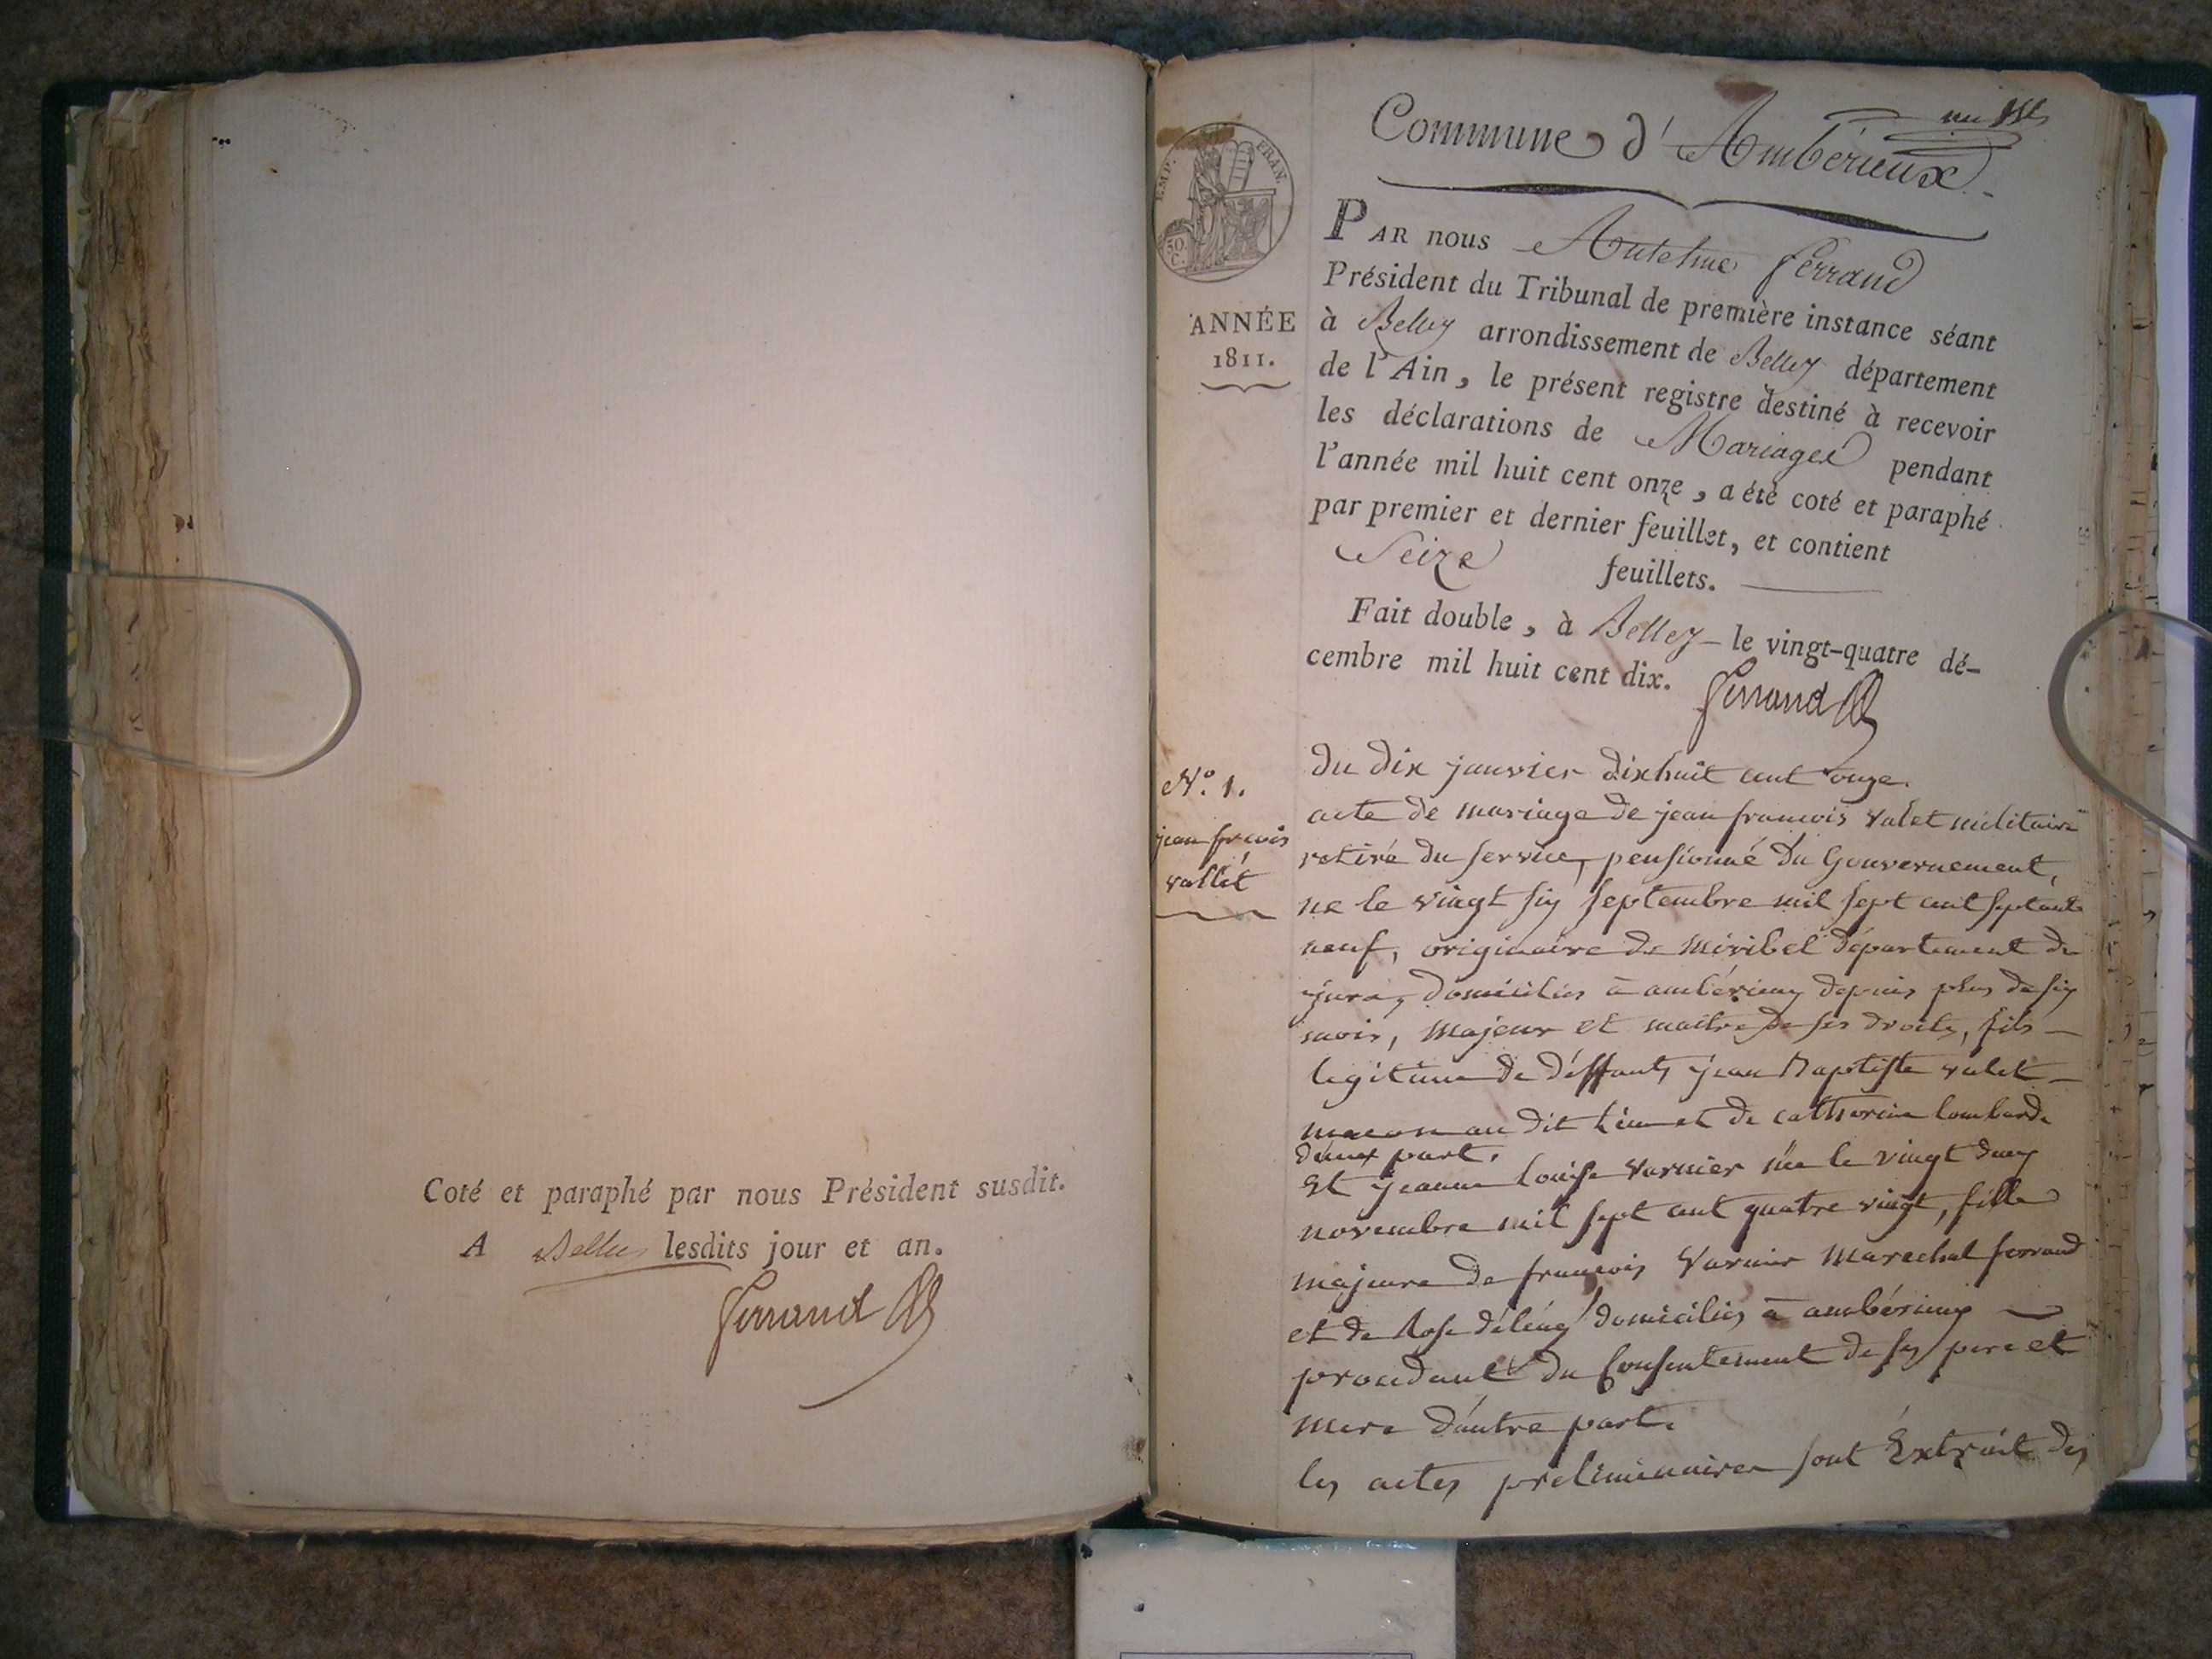 Coté et paraphé par nous Président susdit.
A Belley lesdits jour et an.
Ferrand
Commune d'Ambérieux
EMP. FRAN.
50 C.
ANNÉE
1811.
PAR nous Antelme Ferrand
Président du Tribunal de première instance séant
à Belley arrondissement de Belley département
de l'Ain, le présent registre destiné à recevoir
les déclarations de Mariages pendant
l'année mil huit cent onze, a été coté et paraphé
par premier et dernier feuillet, et contient
Seize feuillets.
Fait double, à Belley le vingt-quatre dé-
cembre mil huit cent dix.
Ferrand
N.º 1.
jean frcois
vallét
du dix janvier dixhuit cent onze.
acte de mariage de jean francois valet militaire
retiré du service, pensionné du Gouvernement,
né le vingt six septembre mil sept cent septante
neuf, originaire de miribel département du
jura, domicilies à ambérieux depuis plus de six
mois, majeur et maitre de ses droits, fils
legitime de déffunts jean Baptiste valet
macon au dit lieu et de catherine lombarde
d'une part.
Et jeanne louise varnier née le vingt deux
novembre mil sept cent quatre vingt, fille
majeure de francois varnier marechal ferrand
et de Rose domicilies à ambérieux
procedant du Consentement de ses pere et
mere d'autre part.
les actes preliminaires sont Extrait des